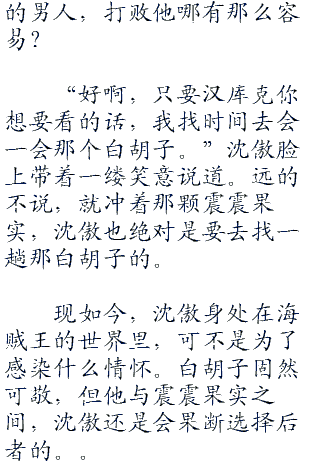 的男人，打败他哪有那么容
易？
“好啊，只要汉库克你
想要看的话，我找时间去会
一会那个白胡子。”沈傲脸
上带着一缕笑意说道。远的
不说，就冲着那颗震震果
实，沈傲也绝对是要去找一
趟那白胡子的。
现如今，沈傲身处在海
贼王的世界里，可不是为了
感染什么情怀。白胡子固然
可敬，但他与震震果实之
间，沈傲还是会果断选择后
者的。。